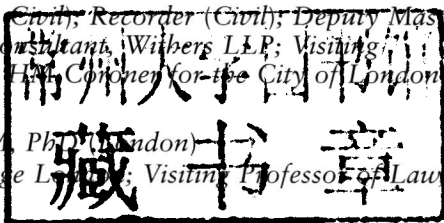 Civil); Recorder (Civil); Deputy Mas
onsultant, Withers LLP; Visiting
HM Coroner for the City of London
常州大学图书馆
PhD (London)
藏书章
ge London; Visiting Professor of Law